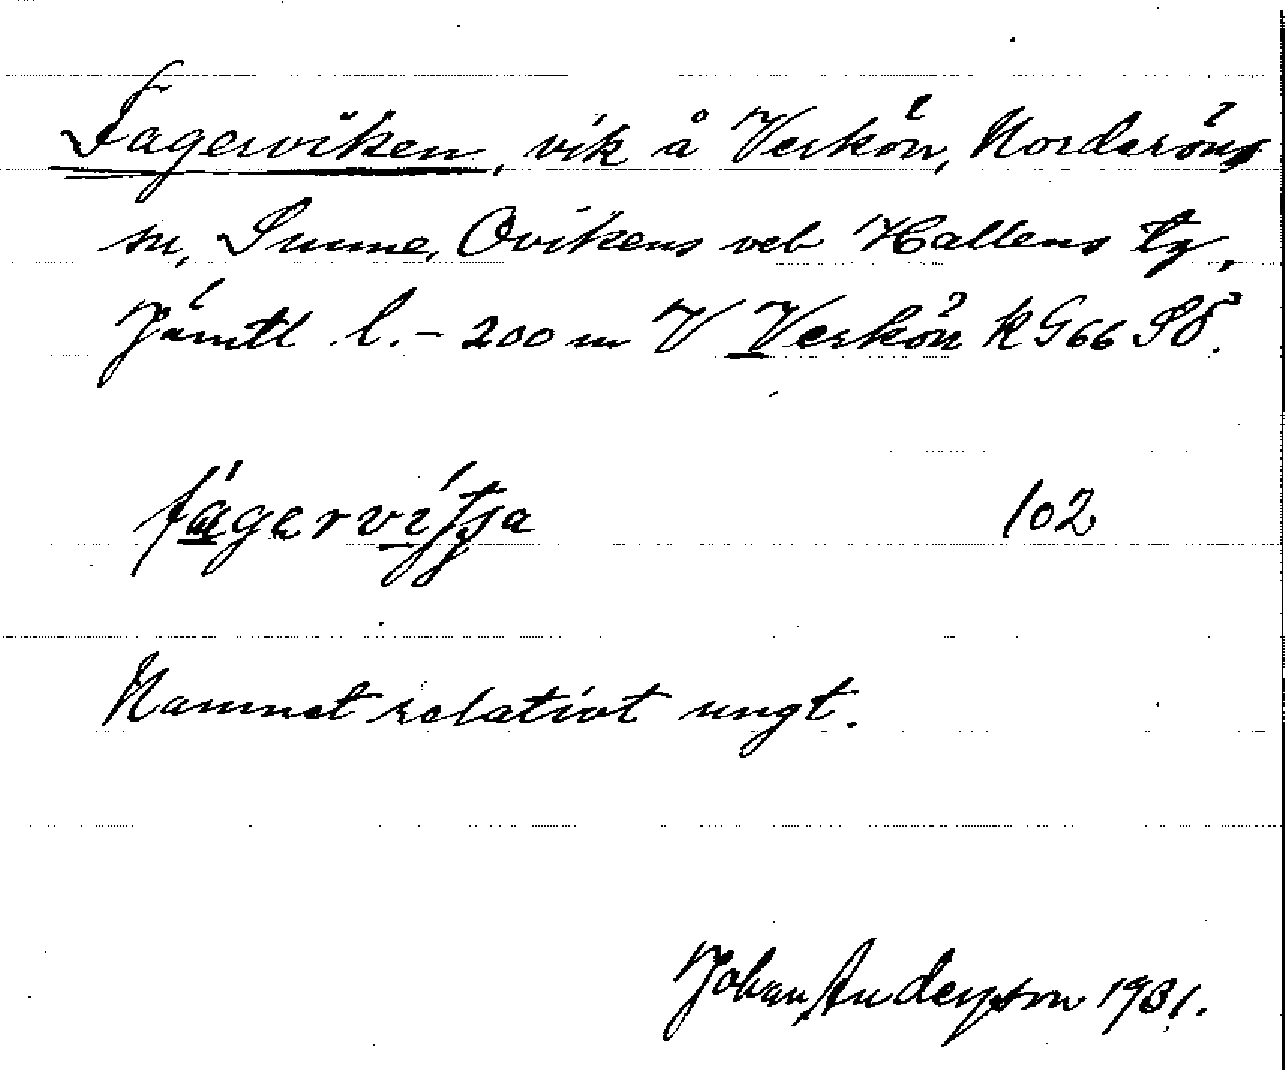 Fagerviken, vik å Verkön, Norderöns
sn, Sunne, Ovikens och Hallens tg,
Jämtl l. - 200 m V Verkön k G66 SÖ.
fágervítja 102
Namnet relativt ungt.
Johan Anderson 1931.